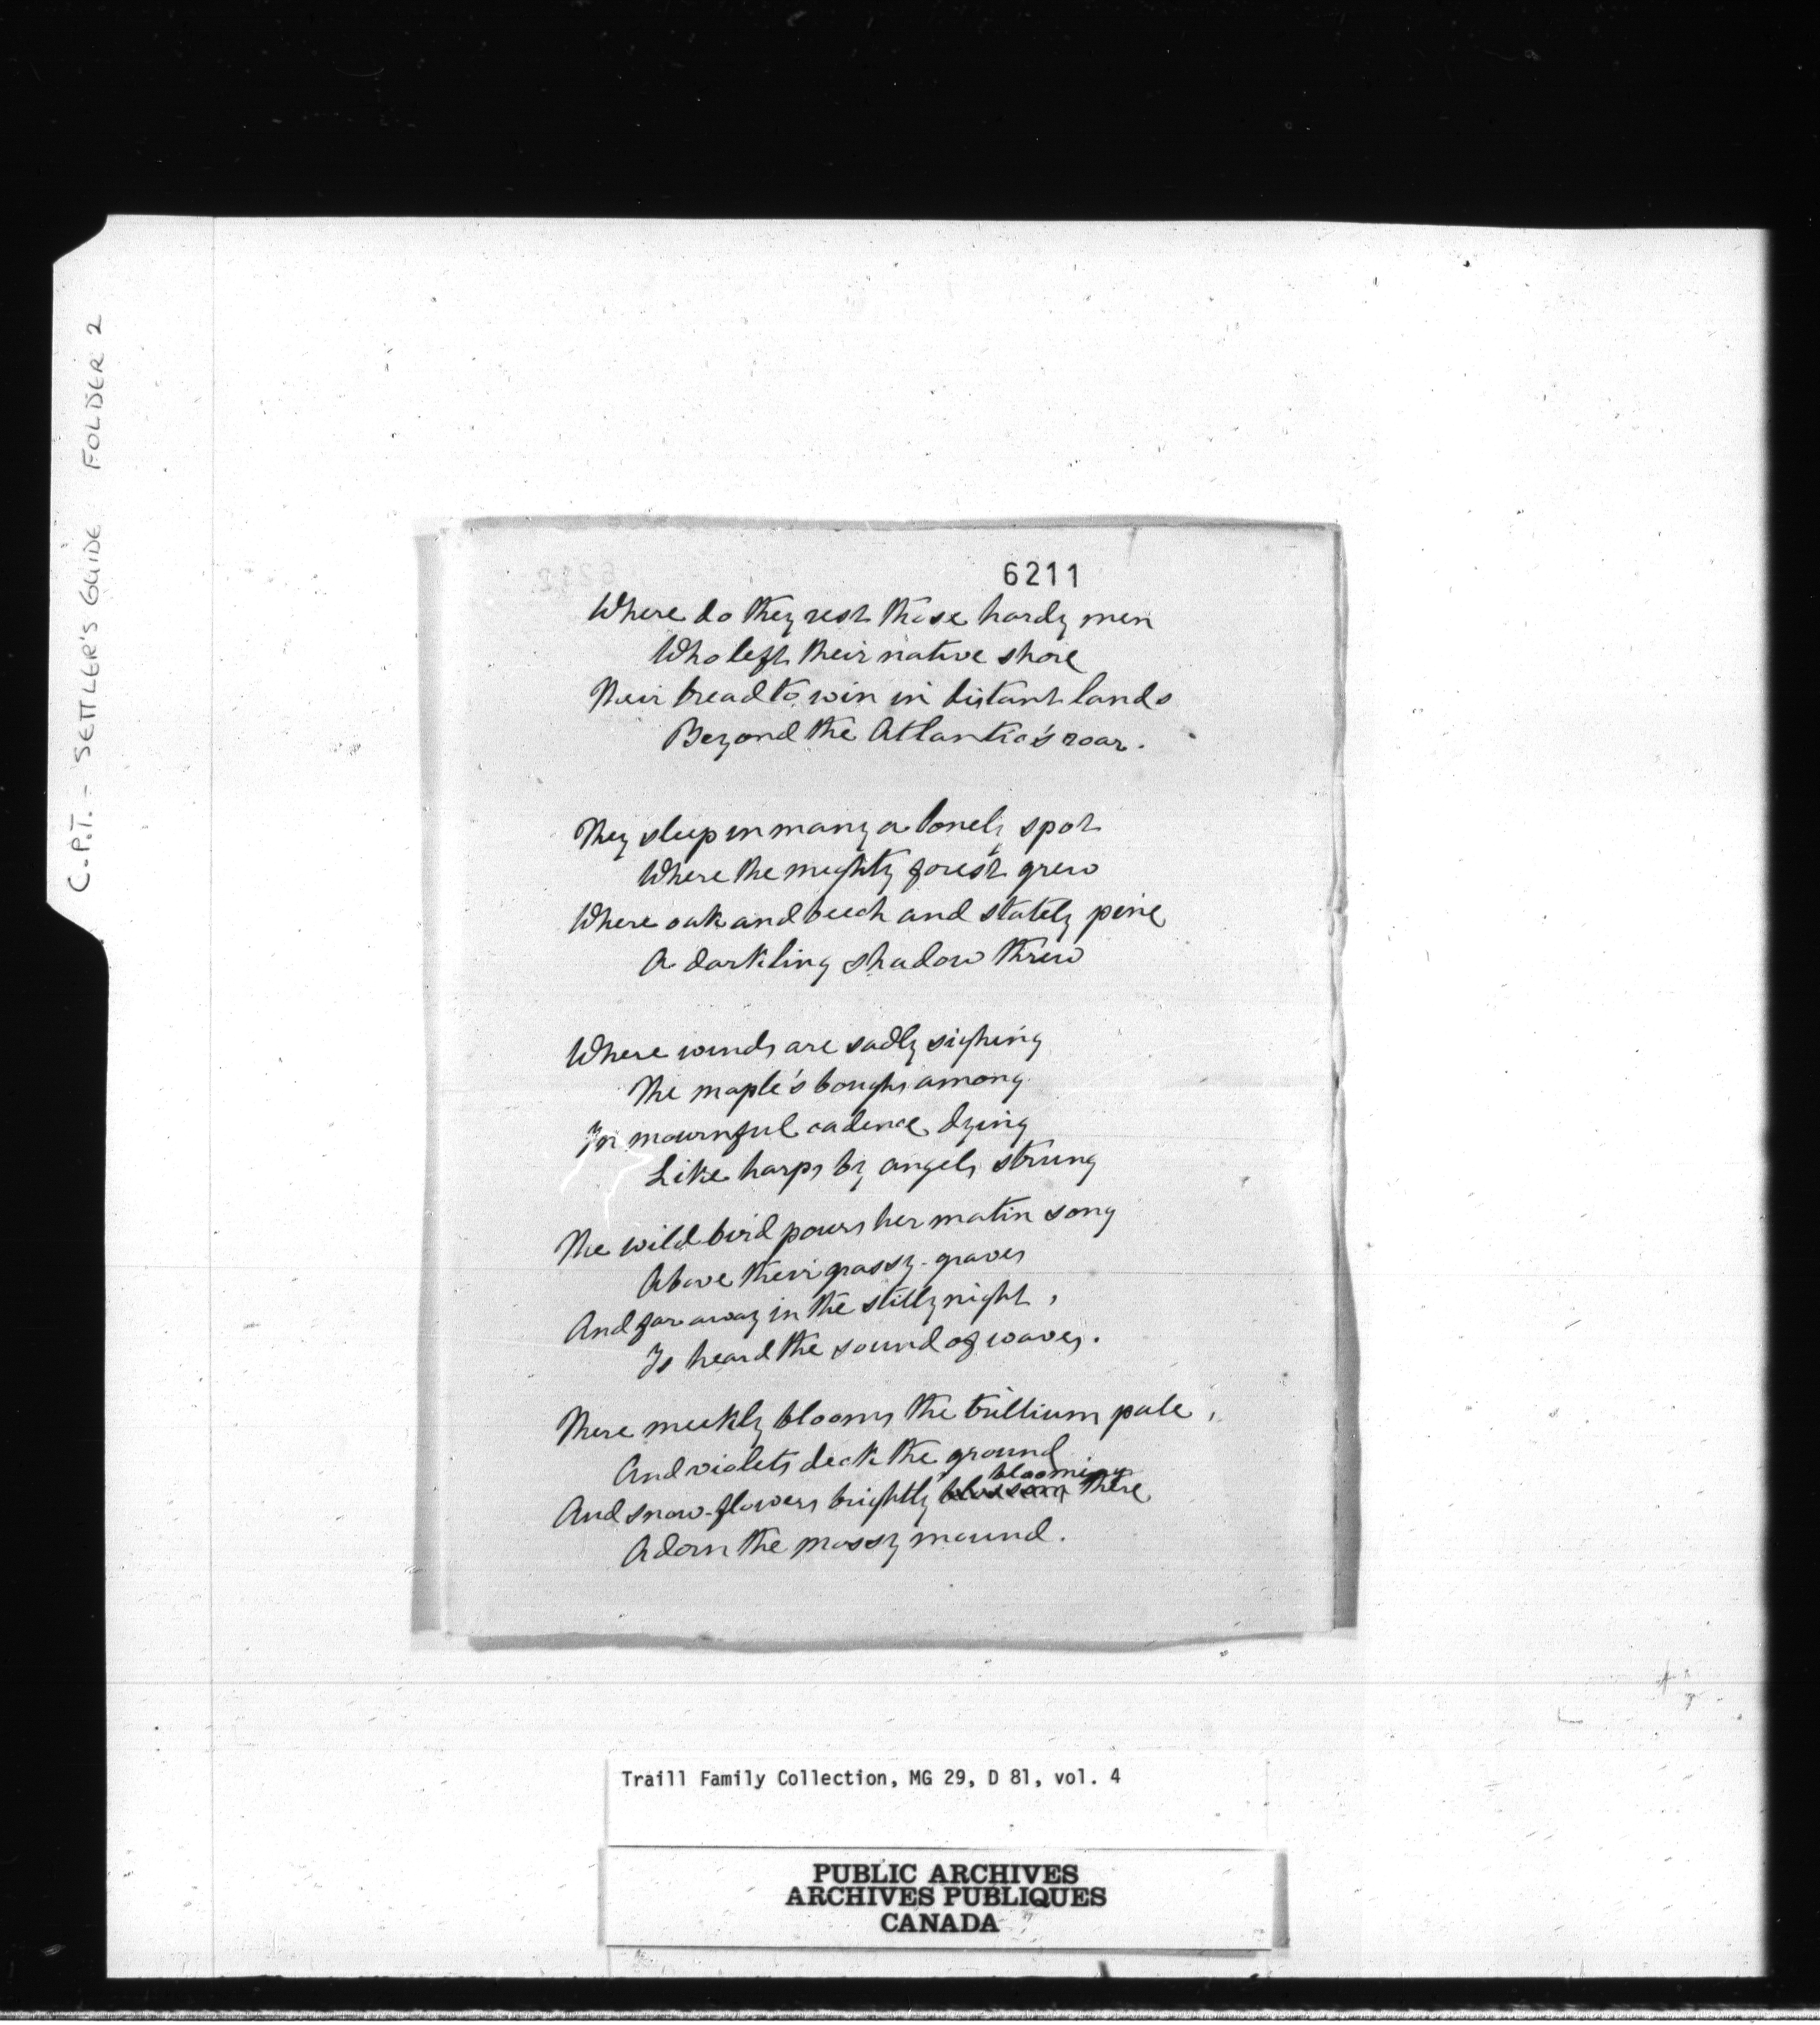 C.P.T. - SETTLER'S GUIDE FOLDER 2
6211
Where do they rest those hardy men
Who left their native shore
Their bread to win in distant lands
Beyond the Atlantic's roar.
They sleep in many a lonely spot
Where the mighty forest grew
Where oak and beech and stately pine
A darkling shadow threw
Where winds are sadly sighing
The maple's boughs among
In mournful cadence dying
Like harps by angels strung
The wild bird pours her matin song
Above their grassy graves
And far away in the stilly night,
Is heard the sound of waves.
There meekly blooms the trillium pale,
And violets deck the ground
blooming
And snow-flowers brightly blossom there
Adorn the mossy mound.
Traill Family Collection, MG 29, D 81, vol. 4
PUBLIC ARCHIVES
ARCHIVES PUBLIQUES
CANADA